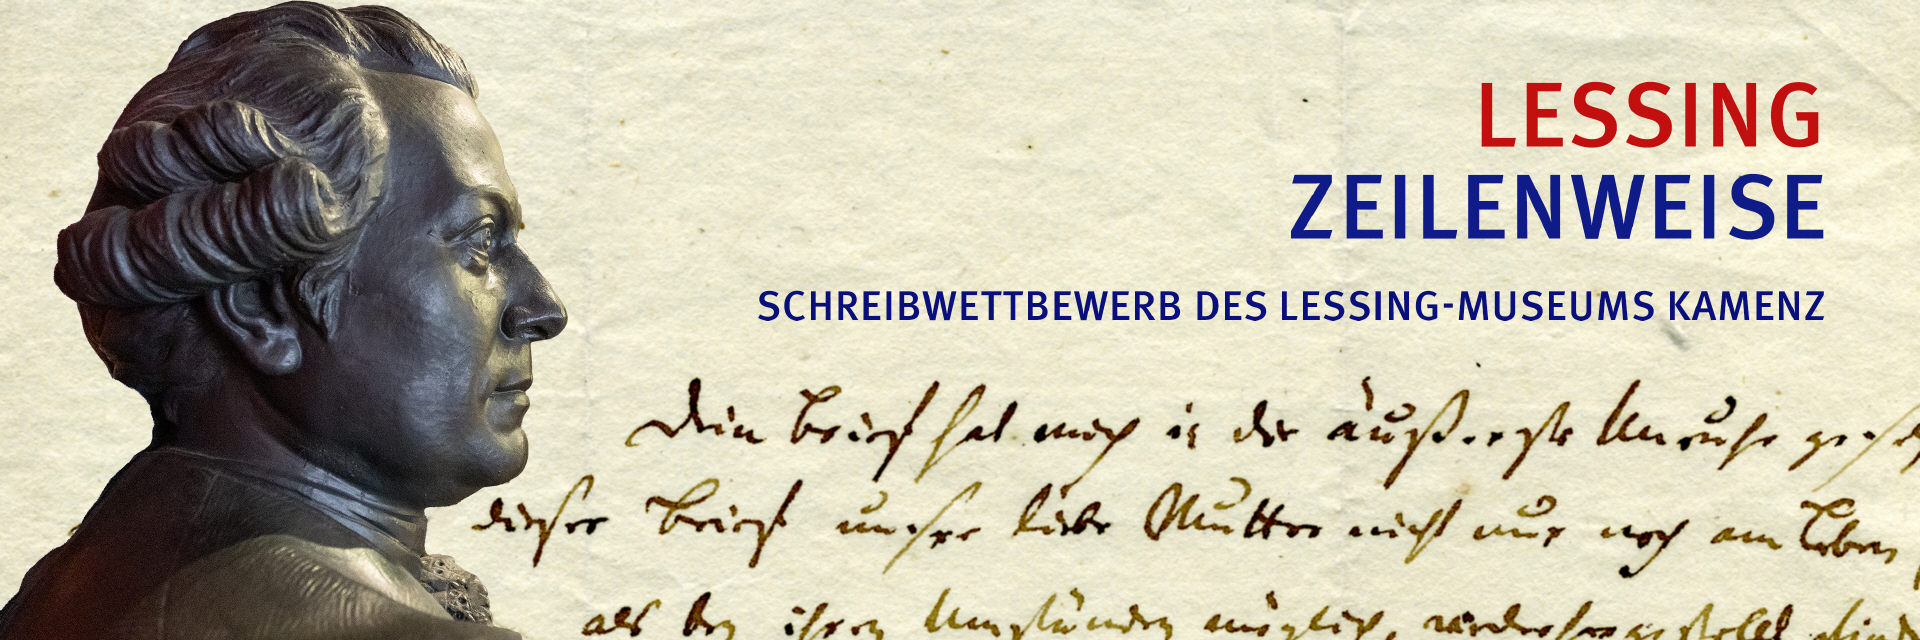 LESSING
ZEILENWEISE
SCHREIBWETTBEWERB DES LESSING-MUSEUMS KAMENZ
Dein Brief hat mich in die äußerste Unruhe
dieser Brief unsre liebe Mutter nicht nur noch am Leben
als bey ihren Umständen möglich, wiederhergestellt